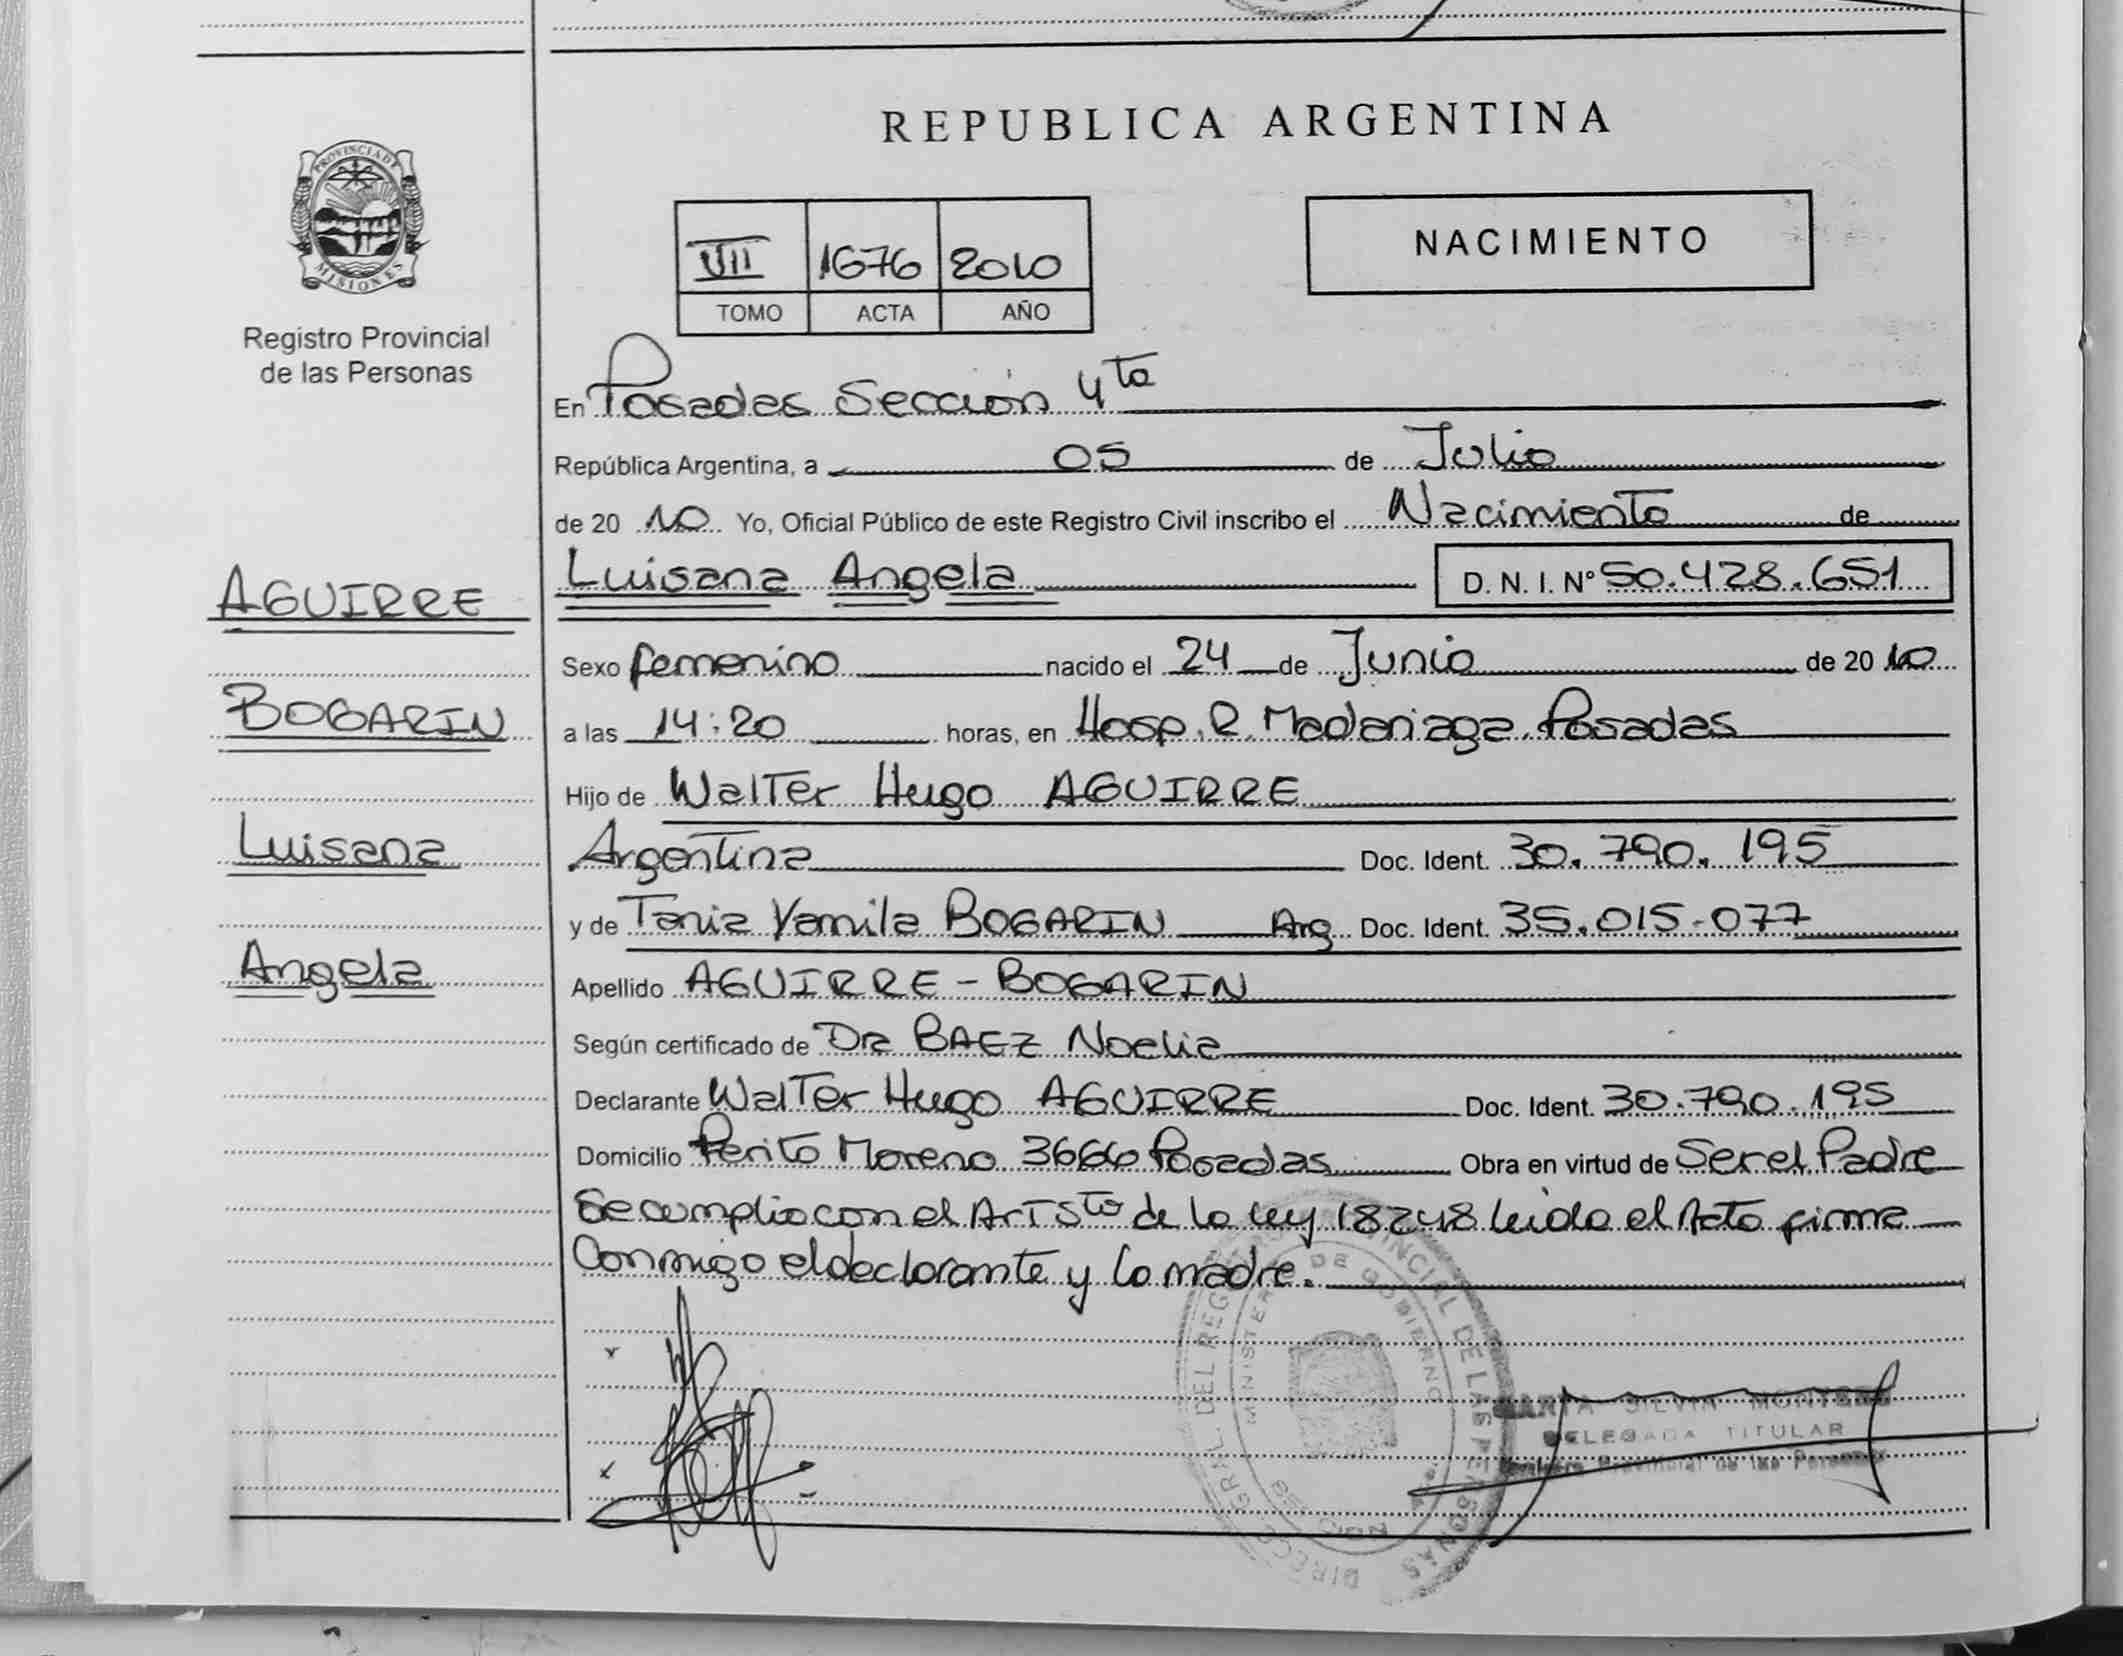 PROVINCIA DE
MISIONES
Registro Provincial
de las Personas
AGUIRRE
BOGARIN
Luisana
Angela
REPUBLICA ARGENTINA
VII 1676 2010
TOMO ACTA AÑO
NACIMIENTO
En Posadas Sección 4ta
República Argentina, a 05 de Julio
de 2010 Yo, Oficial Público de este Registro Civil inscribo el Nacimiento de
Luisana Angela D. N. I. Nº 50.428.651
Sexo femenino nacido el 24 de Junio de 2010
a las 14:20 horas, en Hosp. R. Madariaga Posadas
Hijo de Walter Hugo AGUIRRE
Argentina Doc. Ident. 30.790.195
y de Tania Yamila BOGARIN Arg Doc. Ident. 35.015.077
Apellido AGUIRRE - BOGARIN
Según certificado de Dra BAEZ Noelia
Declarante Walter Hugo AGUIRRE Doc. Ident. 30.790.195
Domicilio Perito Moreno 3666 Posadas Obra en virtud de Ser el Padre
Se cumplio con el Art 5to de la ley 18248 leida el Acta firma
Conmigo el declarante y la madre.
DIRECC. GRAL. DEL REGISTRO PROVINCIAL DE LAS PERSONAS
MINISTERIO DE GOBIERNO
MARTA SILVIA MONTERO
DELEGADA TITULAR
Provincial de las Personas